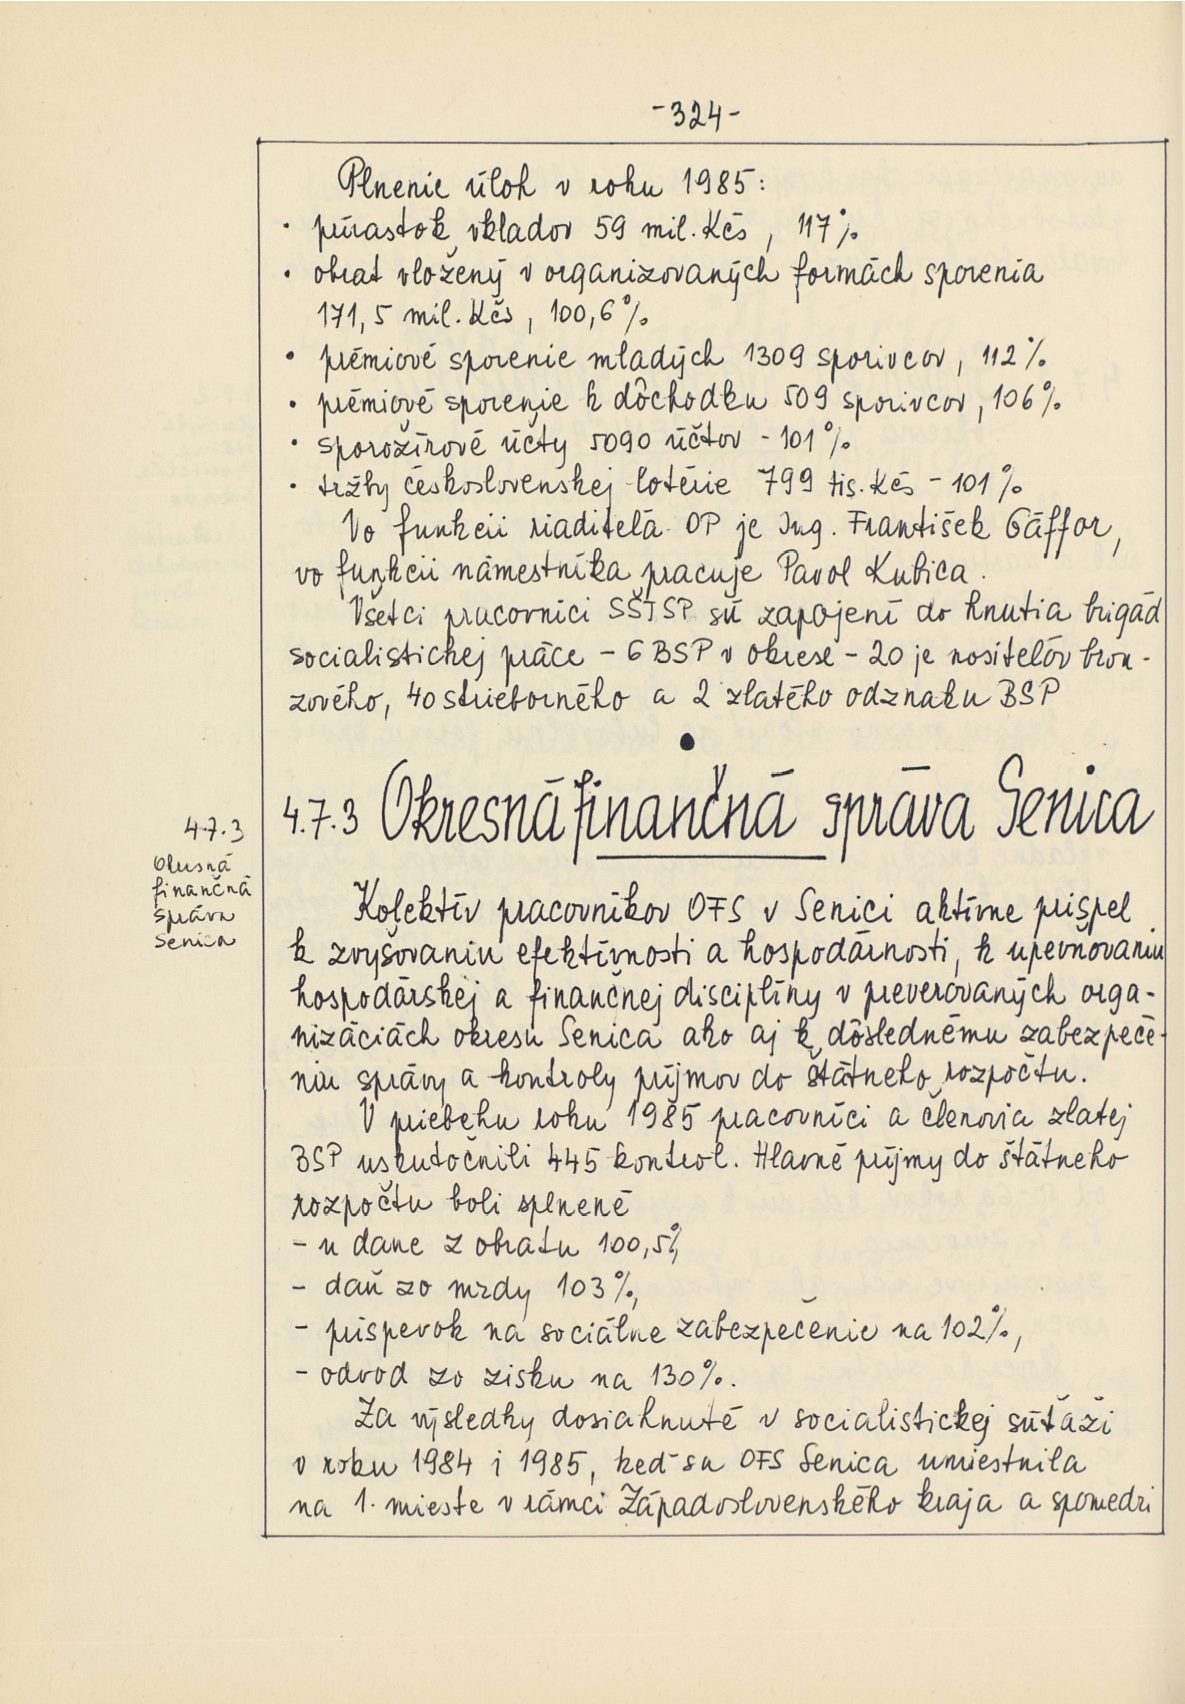 -324-
Plnenie úloh v roku 1985:
• prírastok vkladov 59 mil. Kčs, 117%
• obrat vložený v organizovaných formách sporenia
171,5 mil. Kčs, 100,6%
• prémiové sporenie mladých 1309 sporivcov, 112%
• prémiové sporenie k dôchodku 509 sporivcov, 106%
• sporožírové účty 5090 účtov - 101%
• tržby československej lotérie 799 tis. Kčs - 101%
Vo funkcii riaditeľa OP je Ing. František Gáffor,
vo funkcii námestníka pracuje Pavol Kubica.
Všetci pracovníci SŠTSP sú zapojení do hnutia brigád
socialistickej práce - 6 BSP v okrese - 20 je nositeľov bron-
zového, 40 strieborného a 2 zlatého odznaku BSP
4.7.3 Okresná finančná správa Senica
4.7.3
Okresná
finančná
správa
Senica
Kolektív pracovníkov OFS v Senici aktívne prispel
k zvyšovaniu efektívnosti a hospodárnosti, k upevňovaniu
hospodárskej a finančnej disciplíny v preverovaných orga-
nizáciách okresu Senica ako aj k dôslednému zabezpeče-
niu správy a kontroly príjmov do štátneho rozpočtu.
V priebehu roku 1985 pracovníci a členovia zlatej
BSP uskutočnili 445 kontrol. Hlavné príjmy do štátneho
rozpočtu boli splnené
- u dane z obratu 100,5%
- daň zo mzdy 103%,
- príspevok na sociálne zabezpečenie na 102%,
- odvod zo zisku na 130%.
Za výsledky dosiahnuté v socialistickej súťaži
v roku 1984 i 1985, keď sa OFS Senica umiestnila
na 1. mieste v rámci Západoslovenského kraja a spomedzi